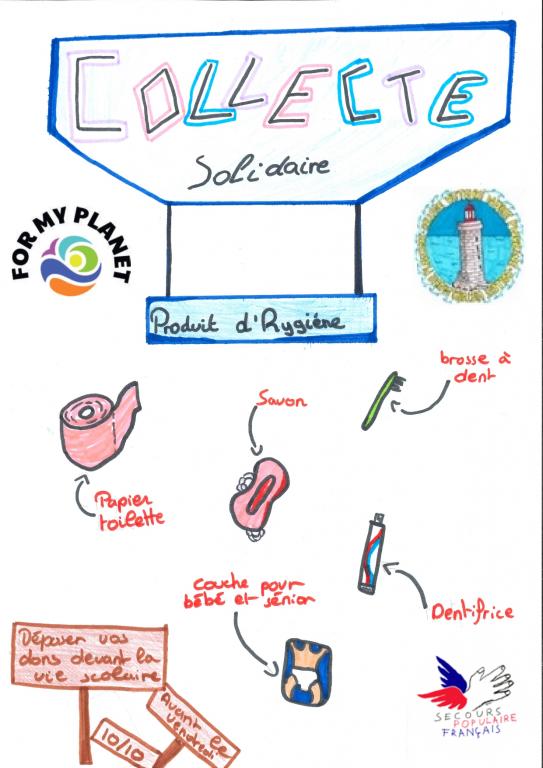 COLLECTE
Solidaire
FOR MY PLANET
Produit d'Hygiène
brosse à
dent
Savon
Papier
toilette
Couche pour
bébé et sénior
Dentifrice
Déposer vos
dons devant la
vie scolaire
Avant le
vendredi
10/10
SECOURS
POPULAIRE
FRANÇAIS